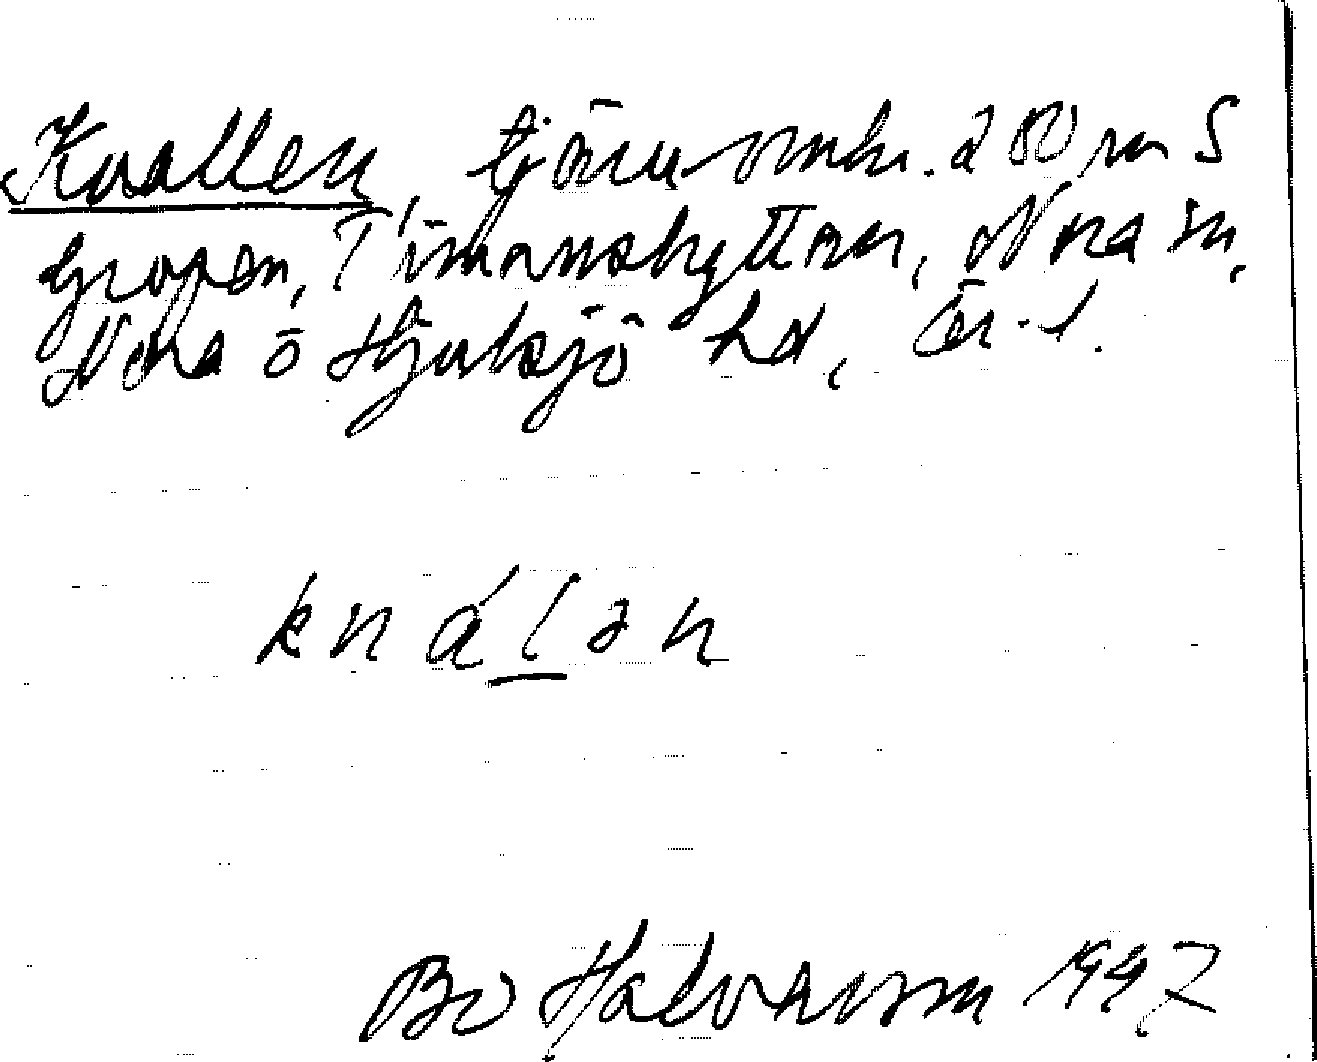 Knallen, tjärn omkr. 200 m S
Gropen, Timanshyttan, Nora sn,
Nora o Hjulsjö hd, Ör. l.
knálən
Bo Halvarsson 1997